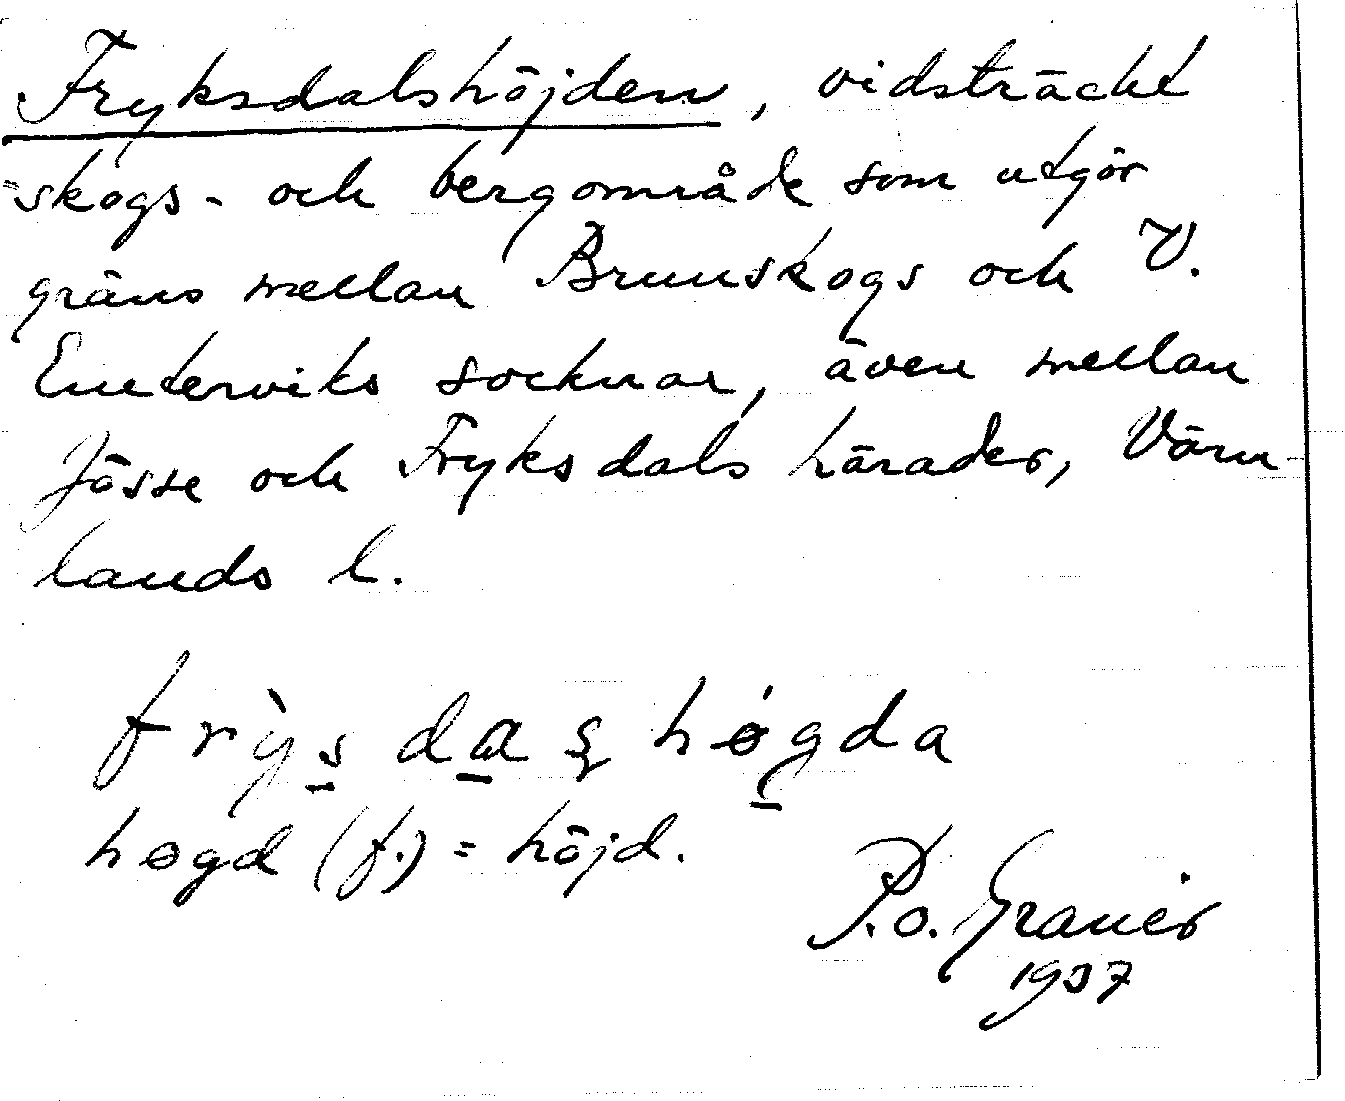 Fryksdalshöjden, vidsträckt
skogs- och bergområde som utgör
gräns mellan Brunskogs och V.
Emterviks socknar, även mellan
Jösse och Fryksdals härader, Värm-
lands l.
frỳs̲da̲ʂhǿg̲da
høgd (f.) = höjd.
P.o. Graner
1937